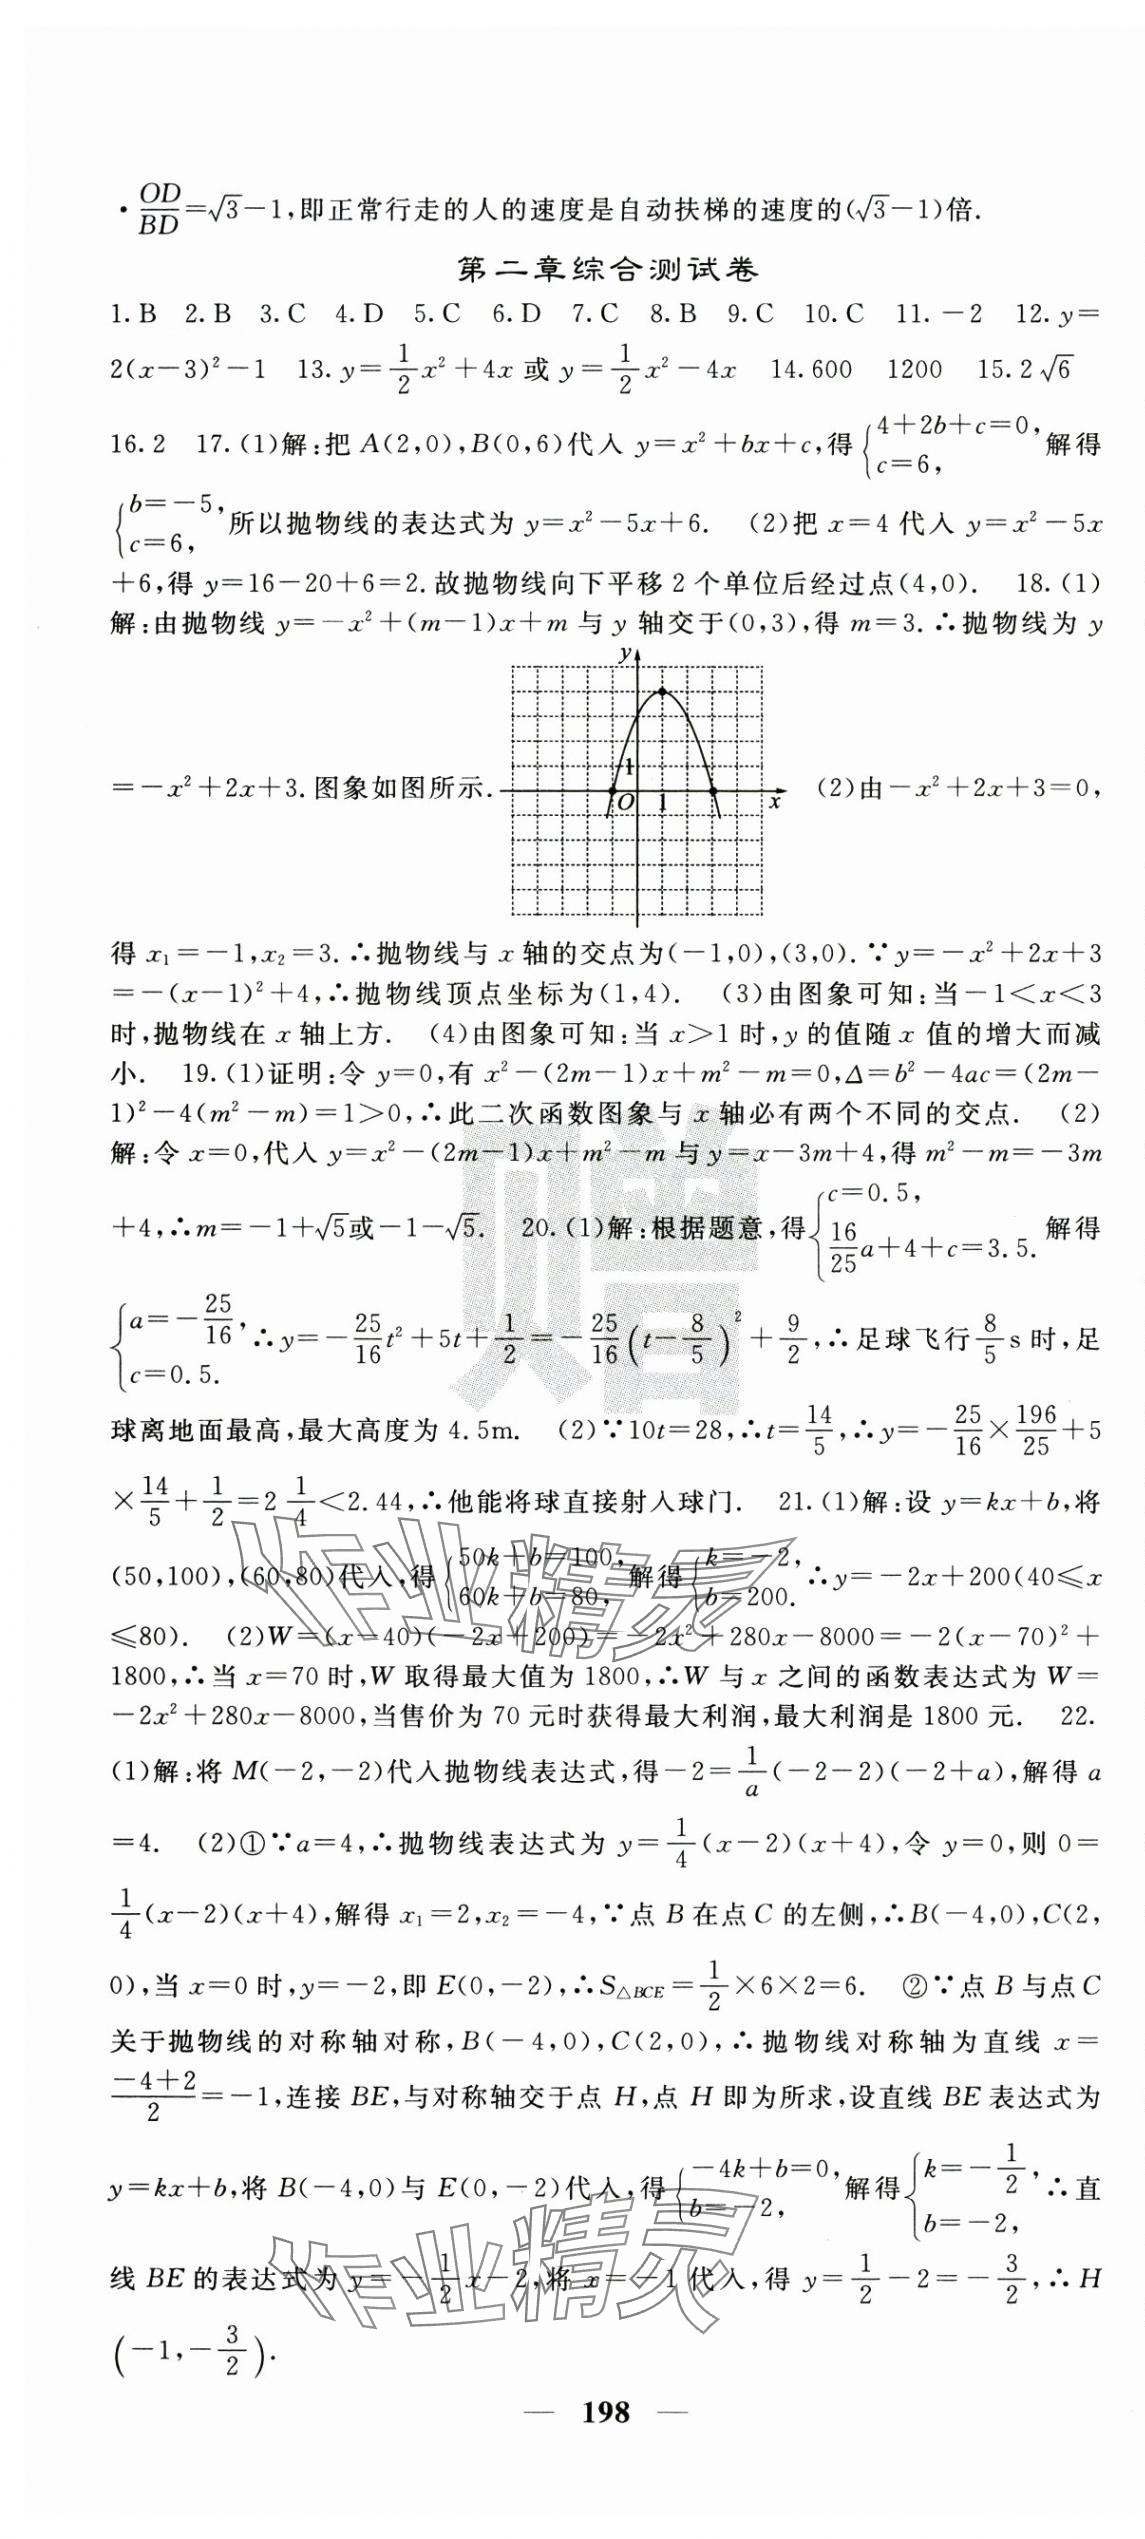 · OD/BD=√3-1,即正常行走的人的速度是自动扶梯的速度的(√3-1)倍.
第二章综合测试卷
1.B 2.B 3.C 4.D 5.C 6.D 7.C 8.B 9.C 10.C 11.-2 12.y=
2(x-3)²-1 13.y=1/2x²+4x或y=1/2x²-4x 14.600 1200 15.2√6
16.2 17.(1)解:把A(2,0),B(0,6)代入y=x²+bx+c,得{4+2b+c=0, c=6, 解得
{b=-5, c=6, 所以抛物线的表达式为y=x²-5x+6. (2)把x=4代入y=x²-5x
+6,得y=16-20+6=2.故抛物线向下平移2个单位后经过点(4,0). 18.(1)
解:由抛物线y=-x²+(m-1)x+m与y轴交于(0,3),得m=3.∴抛物线为y
y
1
=-x²+2x+3.图象如图所示. O 1 x (2)由-x²+2x+3=0,
得x₁=-1,x₂=3.∴抛物线与x轴的交点为(-1,0),(3,0).∵y=-x²+2x+3
=-(x-1)²+4,∴抛物线顶点坐标为(1,4). (3)由图象可知:当-1<x<3
时,抛物线在x轴上方. (4)由图象可知:当x>1时,y的值随x值的增大而减
小. 19.(1)证明:令y=0,有x²-(2m-1)x+m²-m=0,Δ=b²-4ac=(2m-
1)²-4(m²-m)=1>0,∴此二次函数图象与x轴必有两个不同的交点. (2)
解:令x=0,代入y=x²-(2m-1)x+m²-m与y=x-3m+4,得m²-m=-3m
+4,∴m=-1+√5或-1-√5. 20.(1)解:根据题意,得{c=0.5, 16/25a+4+c=3.5. 解得
{a=-25/16, c=0.5. ∴y=-25/16t²+5t+1/2=-25/16(t-8/5)²+9/2,∴足球飞行8/5s时,足
球离地面最高,最大高度为4.5m. (2)∵10t=28,∴t=14/5,∴y=-25/16×196/25+5
×14/5+1/2=2 1/4<2.44,∴他能将球直接射入球门. 21.(1)解:设y=kx+b,将
(50,100),(60,80)代入,得{50k+b=100, 60k+b=80, 解得{k=-2, b=200. ∴y=-2x+200(40≤x
≤80). (2)W=(x-40)(-2x+200)=-2x²+280x-8000=-2(x-70)²+
1800,∴当x=70时,W取得最大值为1800,∴W与x之间的函数表达式为W=
-2x²+280x-8000,当售价为70元时获得最大利润,最大利润是1800元. 22.
(1)解:将M(-2,-2)代入抛物线表达式,得-2=1/a(-2-2)(-2+a),解得a
=4. (2)①∵a=4,∴抛物线表达式为y=1/4(x-2)(x+4),令y=0,则0=
1/4(x-2)(x+4),解得x₁=2,x₂=-4,∵点B在点C的左侧,∴B(-4,0),C(2,
0),当x=0时,y=-2,即E(0,-2),∴S△BCE=1/2×6×2=6. ②∵点B与点C
关于抛物线的对称轴对称,B(-4,0),C(2,0),∴抛物线对称轴为直线x=
-4+2/2=-1,连接BE,与对称轴交于点H,点H即为所求,设直线BE表达式为
y=kx+b,将B(-4,0)与E(0,-2)代入,得{-4k+b=0, b=-2, 解得{k=-1/2, b=-2, ∴直
线BE的表达式为y=-1/2x-2,将x=-1代入,得y=1/2-2=-3/2,∴H
(-1,-3/2).
— 198 —
赠
作业精灵
作业精灵